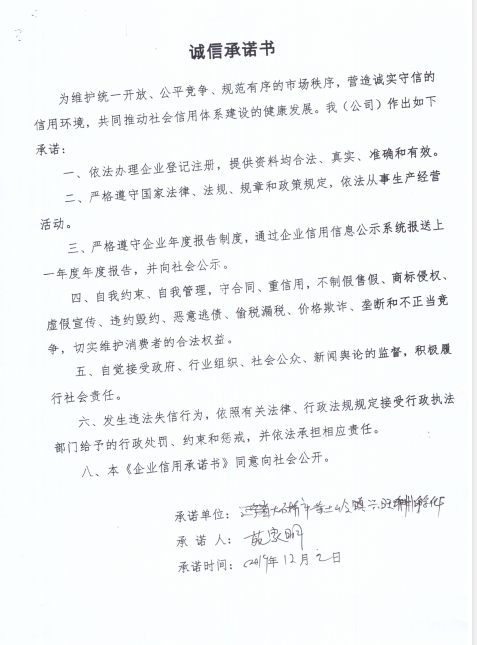 诚信承诺书
为维护统一开放、公平竞争、规范有序的市场秩序，营造诚实守信的
信用环境，共同推动社会信用体系建设的健康发展。我（公司）作出如下
承诺：
一、依法办理企业登记注册，提供资料均合法、真实、准确和有效。
二、严格遵守国家法律、法规、规章和政策规定，依法从事生产经营
活动。
三、严格遵守企业年度报告制度，通过企业信用信息公示系统报送上
一年度年度报告，并向社会公示。
四、自我约束、自我管理，守合同、重信用，不制假售假、商标侵权、
虚假宣传、违约毁约、恶意逃债、偷税漏税、价格欺诈、垄断和不正当竞
争，切实维护消费者的合法权益。
五、自觉接受政府、行业组织、社会公众、新闻舆论的监督，积极履
行社会责任。
六、发生违法失信行为，依照有关法律、行政法规规定接受行政执法
部门给予的行政处罚、约束和惩戒，并依法承担相应责任。
八、本《企业信用承诺书》同意向社会公开。
承诺单位：
承 诺 人：
承诺时间：2019年12月 日